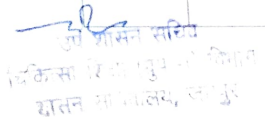 उप शासन सचिव
चिकित्सा शिक्षा विभाग
शासन सचिवालय, जयपुर